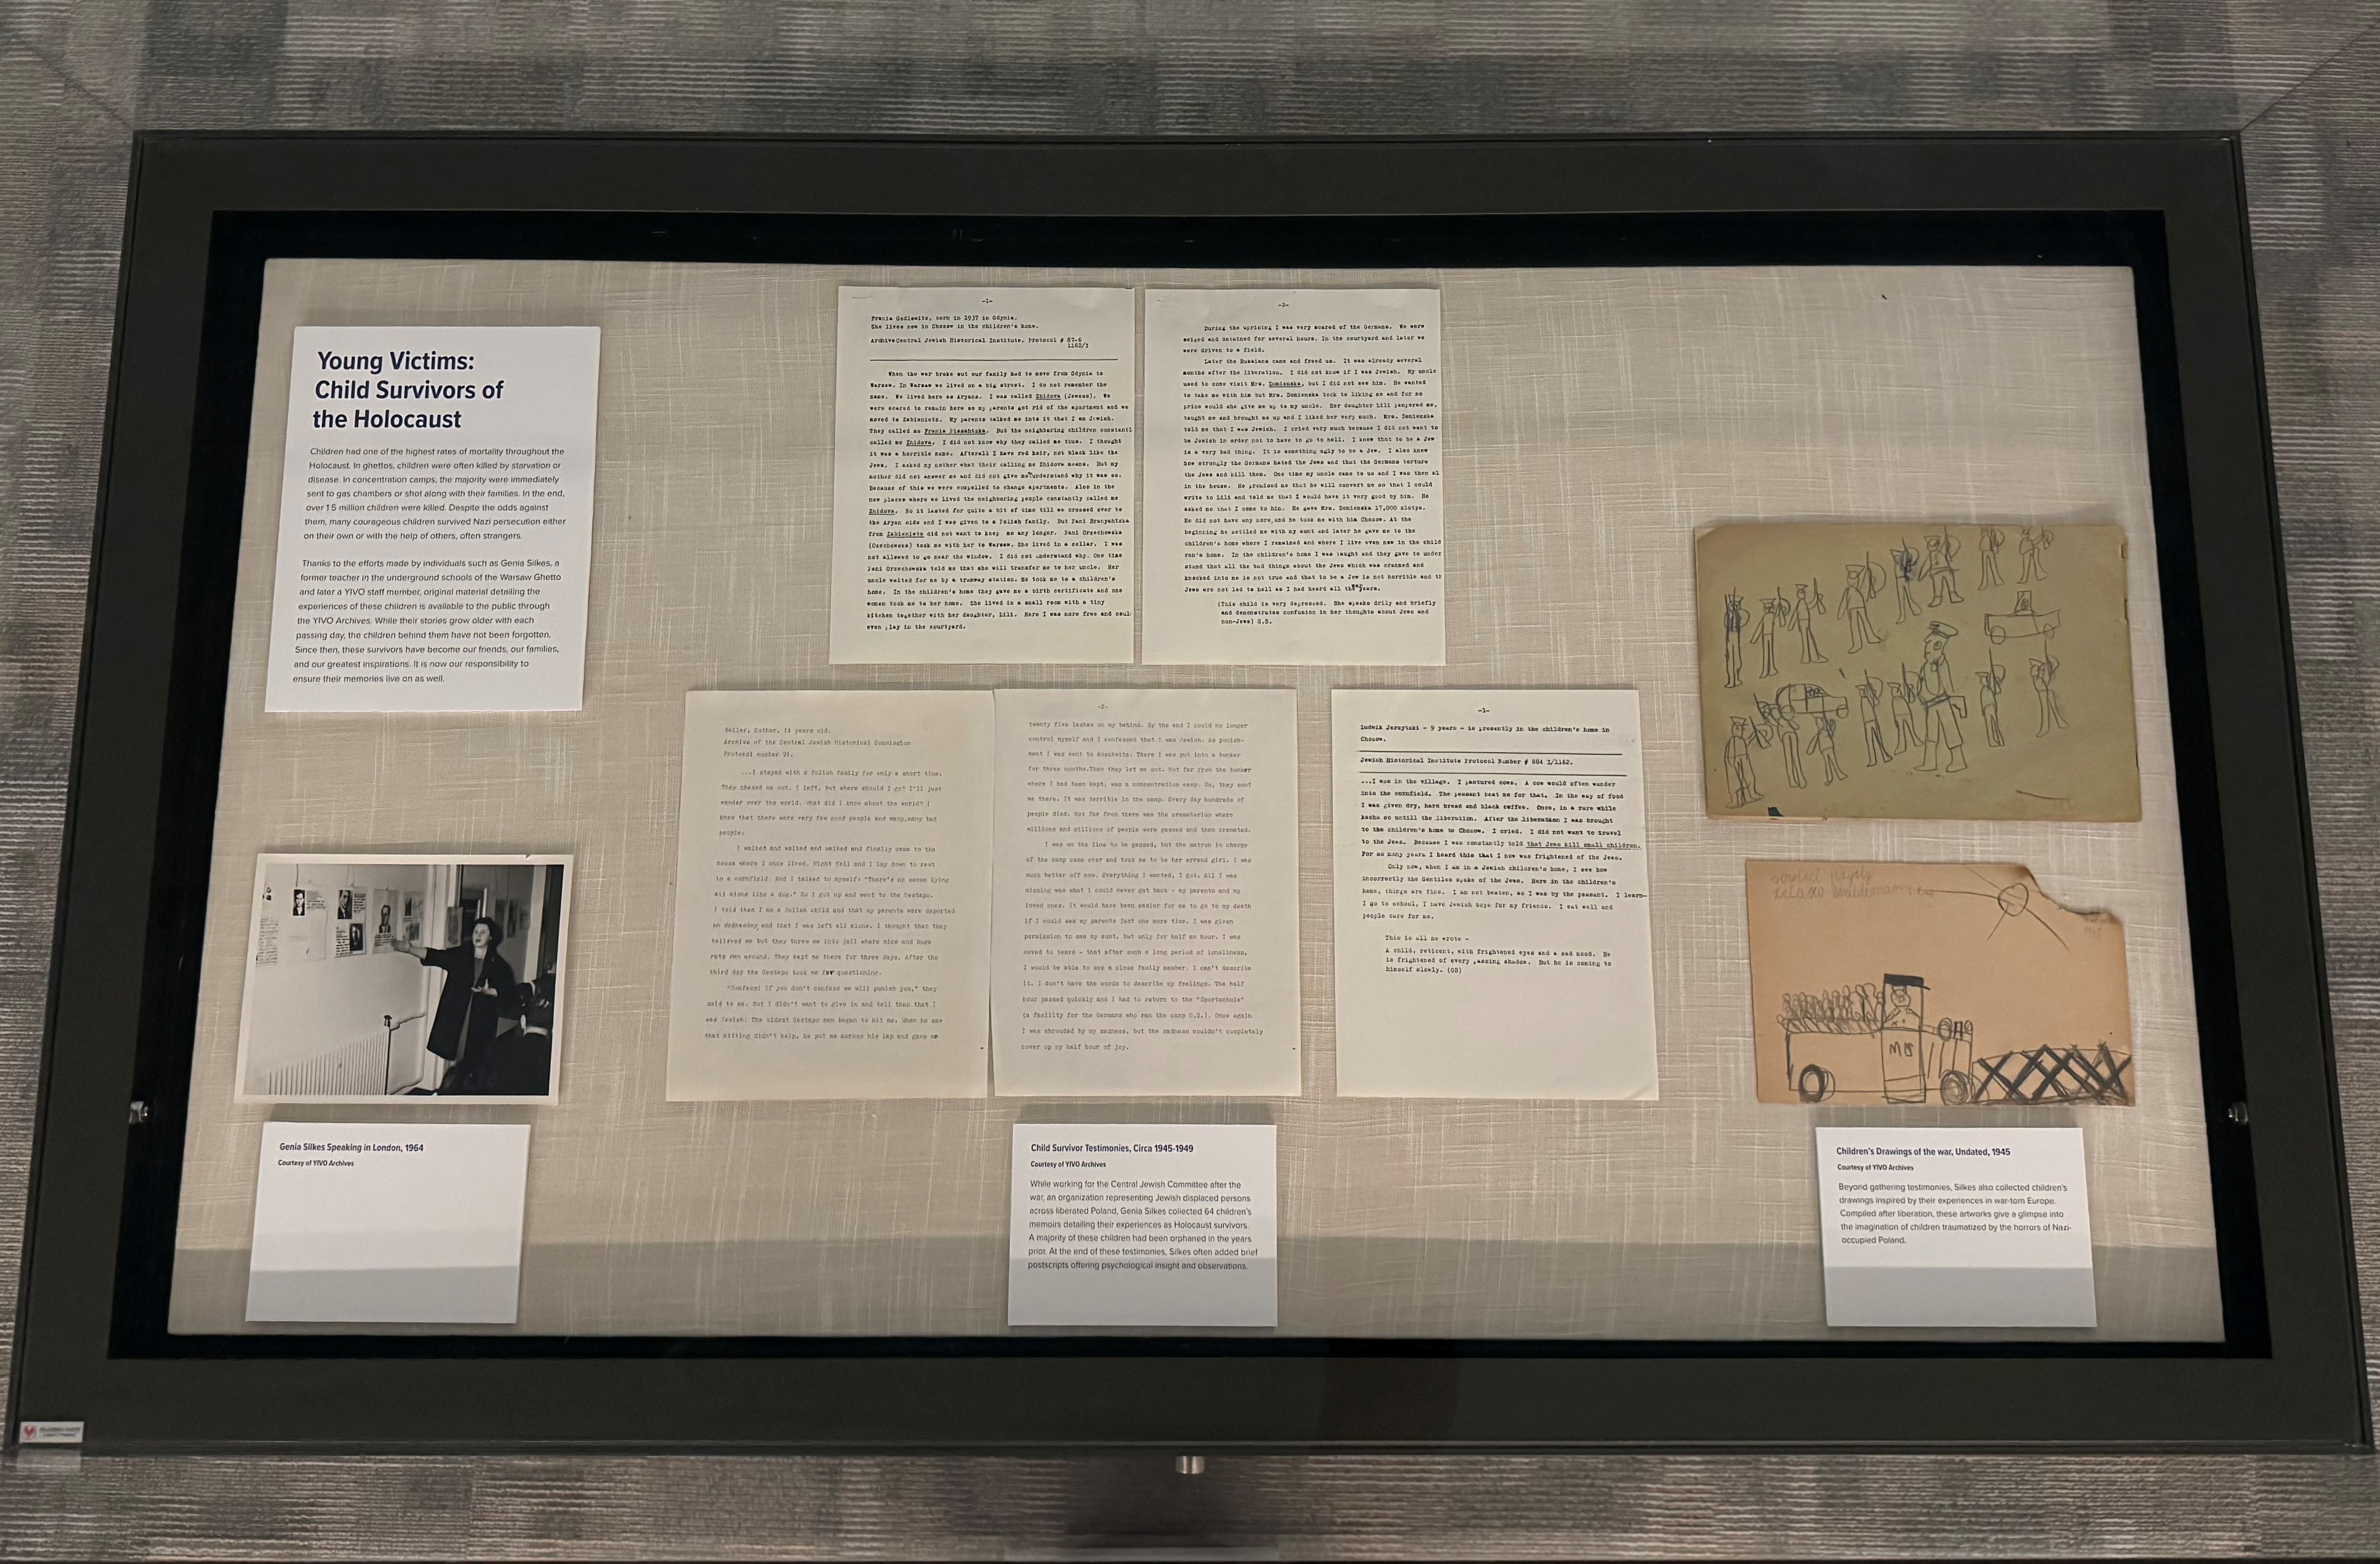 Young Victims:
Child Survivors of
the Holocaust
Children had one of the highest rates of mortality throughout the
Holocaust. In ghettos, children were often killed by starvation or
disease. In concentration camps, the majority were immediately
sent to gas chambers or shot along with their families. In the end,
over 1.5 million children were killed. Despite the odds against
them, many courageous children survived Nazi persecution either
on their own or with the help of others, often strangers.
Thanks to the efforts made by individuals such as Genia Silkes, a
former teacher in the underground schools of the Warsaw Ghetto
and later a YIVO staff member, original material detailing the
experiences of these children is available to the public through
the YIVO Archives. While their stories grow older with each
passing day, the children behind them have not been forgotten.
Since then, these survivors have become our friends, our families,
and our greatest inspirations. It is now our responsibility to
ensure their memories live on as well.
-1-
born in 1937 in Gdynia.
She lives now in Chozow in the children's home.
Archive Central Jewish Historical Institute. Protocol # 87-6
1162/I
When the war broke out our family had to move from Gdynia to
Warsaw. In Warsaw we lived on a big street. I do not remember the
name. We lived here as Aryans. I was called Zhidova (Jewess). We
were scared to remain here so my parents got rid of the apartment and we
moved to Zabieniets. My parents talked me into it that I am Jewish.
They called me Frania. But the neighboring children constantl
called me Zhidova. I did not know why they called me thus. I thought
it was a horrible name. Afterall I have red hair, not black like the
Jews. I asked my mother what their calling me Zhidova means. But my
mother did not answer me and did not give me understand why it was so.
Because of this we were compelled to change apartments. Also in the
new places where we lived the neighboring people constantly called me
Zhidova. So it lasted for quite a bit of time till we crossed over to
the Aryan side and I was given to a Polish family. But Pani
from Zabieniets did not want to keep me any longer. Pani Orzechowska
(Ozechowska) took me with her to Warsaw. She lived in a cellar. I was
not allowed to go near the window. I did not understand why. One time
Pani Orzechowska told me that she will transfer me to her uncle. Her
uncle waited for me by a tramway station. He took me to a children's
home. In the children's home they gave me a birth certificate and one
woman took me to her home. She lived in a small room with a tiny
kitchen together with her daughter, Lili. Here I was more free and coul
even play in the courtyard.
-2-
During the uprising I was very scared of the Germans. We were
seized and detained for several hours. In the courtyard and later we
were driven to a field.
Later the Russians came and freed us. It was already several
months after the liberation. I did not know if I was Jewish. My uncle
used to come visit Mrs. Domienska, but I did not see him. He wanted
to take me with him but Mrs. Domienska took to liking me and for no
price would she give me up to my uncle. Her daughter Lili pampered me,
taught me and brought me up and I liked her very much. Mrs. Domienska
told me that I was Jewish. I cried very much because I did not want to
be Jewish in order not to have to go to hell. I knew that to be a Jew
is a very bad thing. It is something ugly to be a Jew. I also knew
how strongly the Germans hated the Jews and that the Germans torture
the Jews and kill them. One time my uncle came to us and I was then al
in the house. He promised me that he will convert me so that I could
write to Lili and told me that I would have it very good by him. He
asked me that I come to him. He gave Mrs. Domienska 17,000 zlotys.
He did not have any more, and he took me with him Chozow. At the
beginning he settled me with my aunt and later he gave me to the
children's home where I remained and where I live even now in the child
ren's home. In the children's home I was taught and they gave to under
stand that all the bad things about the Jews which was crammed and
knocked into me is not true and that to be a Jew is not horrible and th
Jews are not led to hell as I had heard all the war years.
(This child is very depressed. She speaks drily and briefly
and demonstrates confusion in her thoughts about Jews and
non-Jews) G.S.
Esther, 14 years old.
Archive of the Central Jewish Historical Commission
Protocol number 91.
...I stayed with a Polish family for only a short time.
They chased me out. I left, but where should I go? I'll just
wander over the world. What did I know about the world? I
knew that there were very few good people and many, many bad
people.
I walked and walked and walked and finally came to the
house where I once lived. Night fell and I lay down to rest
in a cornfield. And I talked to myself: "There's no sense lying
all alone like a dog." So I got up and went to the Gestapo.
I told them I am a Polish child and that my parents were deported
on Wednesday and that I was left all alone. I thought that they
believed me but they threw me into jail where mice and huge
rats ran around. They kept me there for three days. After the
third day the Gestapo took me for questioning.
"Confess! If you don't confess we will punish you," they
said to me. But I didn't want to give in and tell them that I
was Jewish. The oldest Gestapo man began to hit me. When he saw
that hitting didn't help, he put me across his lap and gave me
-2-
twenty five lashes on my behind. By the end I could no longer
control myself and I confessed that I was Jewish. As punish-
ment I was sent to Auschwitz. There I was put into a bunker
for three months. Then they let me out. Not far from the bunker
where I had been kept, was a concentration camp. So, they sent
me there. It was terrible in the camp. Every day hundreds of
people died. Not far from there was the crematorium where
millions and millions of people were gassed and then cremated.
I was on the line to be gassed, but the matron in charge
of the camp came over and took me to be her errand girl. I was
much better off now. Everything I wanted, I got. All I was
missing was what I could never get back - my parents and my
loved ones. It would have been easier for me to go to my death
if I could see my parents just one more time. I was given
permission to see my aunt, but only for half an hour. I was
moved to tears - that after such a long period of loneliness,
I would be able to see a close family member. I can't describe
it. I don't have the words to describe my feelings. The half
hour passed quickly and I had to return to the "Sportschule"
(a facility for the Germans who ran the camp G.S.). Once again
I was shrouded by my sadness, but the sadness couldn't completely
cover up my half hour of joy.
-1-
Ludwik Jerzytski - 9 years - is presently in the children's home in
Chozow.
Jewish Historical Institute Protocol Number # 884 I/1162.
...I was in the village. I pastured cows. A cow would often wander
into the cornfield. The peasant beat me for that. In the way of food
I was given dry, hard bread and black coffee. Once, in a rare while
kasha so untill the liberation. After the liberation I was brought
to the children's home to Chozow. I cried. I did not want to travel
to the Jews. Because I was constantly told that Jews kill small children.
For so many years I heard this that I now was frightened of the Jews.
Only now, when I am in a Jewish children's home, I see how
incorrectly the Gentiles spoke of the Jews. Here in the children's
home, things are fine. I am not beaten, as I was by the peasant. I learn-
I go to school, I have Jewish boys for my friends. I eat well and
people care for me.
This is all he wrote -
A child, reticent, with frightened eyes and a sad mood. He
is frightened of every passing shadow. But he is coming to
himself slowly. (GS)
MB
Genia Silkes Speaking in London, 1964
Courtesy of YIVO Archives
Child Survivor Testimonies, Circa 1945-1949
Courtesy of YIVO Archives
While working for the Central Jewish Committee after the
war, an organization representing Jewish displaced persons
across liberated Poland, Genia Silkes collected 64 children's
memoirs detailing their experiences as Holocaust survivors.
A majority of these children had been orphaned in the years
prior. At the end of these testimonies, Silkes often added brief
postscripts offering psychological insight and observations.
Children's Drawings of the war, Undated, 1945
Courtesy of YIVO Archives
Beyond gathering testimonies, Silkes also collected children's
drawings inspired by their experiences in war-torn Europe.
Compiled after liberation, these artworks give a glimpse into
the imagination of children traumatized by the horrors of Nazi-
occupied Poland.